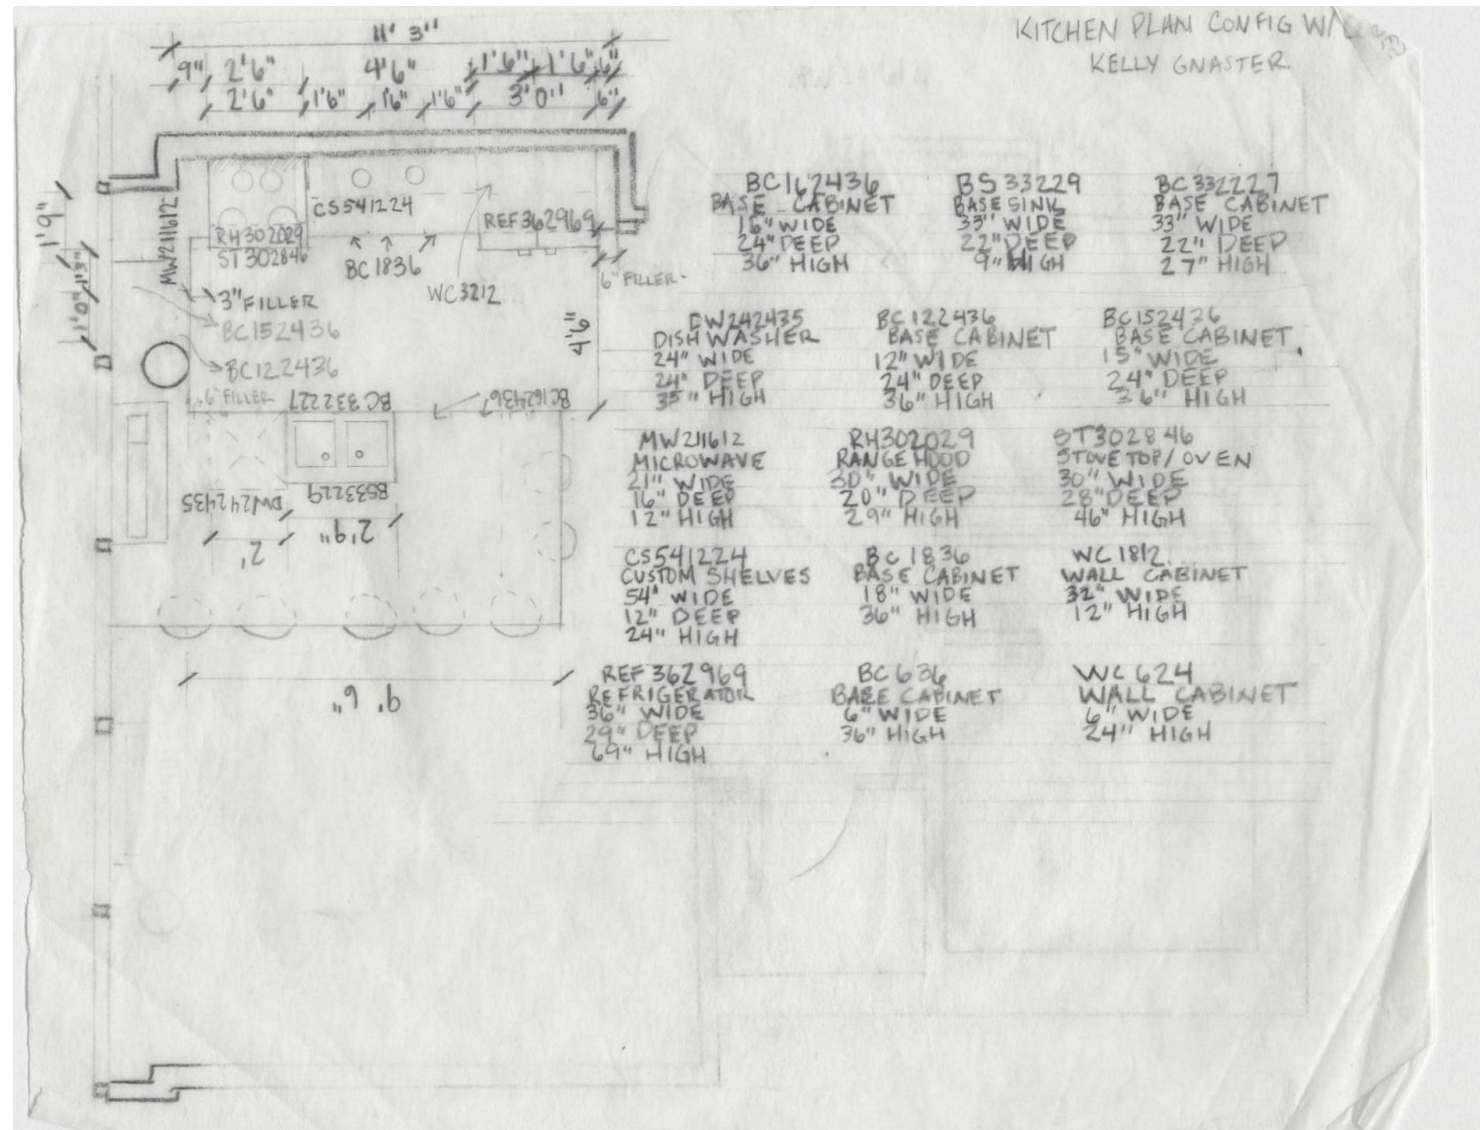 KITCHEN PLAN CONFIG W/
KELLY GNASTER
11' 3"
9" 2'6" 4'6" 1'6" 1'6" 6"
2'6" 1'6" 1'6" 1'6" 3'0" 6"
1'9"
3"
1'0"
MW211612
CS541224
RH302029
ST302846
BC1836
REF362969
WC3212
6" FILLER
3" FILLER
BC152436
BC122436
4'6"
6" FILLER
BC332227
BC162436
DW242435
BS33229
2'
2'9"
9' 6"
BC162436
BASE CABINET
16" WIDE
24" DEEP
36" HIGH
BS33229
BASE SINK
33" WIDE
22" DEEP
9" HIGH
BC332227
BASE CABINET
33" WIDE
22" DEEP
27" HIGH
DW242435
DISHWASHER
24" WIDE
24" DEEP
35" HIGH
BC122436
BASE CABINET
12" WIDE
24" DEEP
36" HIGH
BC152436
BASE CABINET
15" WIDE
24" DEEP
36" HIGH
MW211612
MICROWAVE
21" WIDE
16" DEEP
12" HIGH
RH302029
RANGE HOOD
30" WIDE
20" DEEP
29" HIGH
ST302846
STOVE TOP/OVEN
30" WIDE
28" DEEP
46" HIGH
CS541224
CUSTOM SHELVES
54" WIDE
12" DEEP
24" HIGH
BC1836
BASE CABINET
18" WIDE
36" HIGH
WC1812
WALL CABINET
32" WIDE
12" HIGH
REF362969
REFRIGERATOR
36" WIDE
29" DEEP
69" HIGH
BC636
BASE CABINET
6" WIDE
36" HIGH
WC624
WALL CABINET
6" WIDE
24" HIGH